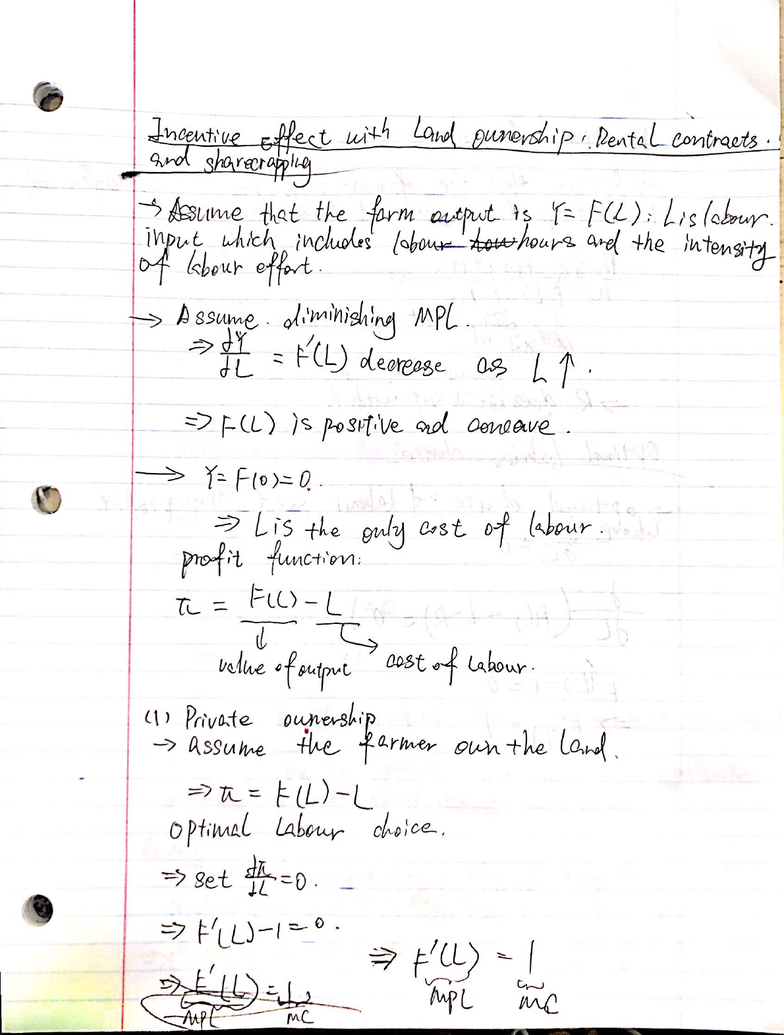 Incentive effect with Land ownership, Rental contracts.
and sharecropping
→ Assume that the farm output is Y = F(L): L is labour.
input which includes labour how hours and the intensity
of labour effort.
→ Assume diminishing MPL.
⇒ dY/dL = F'(L) decrease as L ↑.
⇒ F(L) is positive and concave.
→ Y = F(0) = 0.
⇒ L is the only cost of labour.
profit function:
π = F(L) - L
value of output cost of labour.
(1) Private ownership
→ assume the farmer own the land.
⇒ π = F(L) - L
optimal Labour choice.
⇒ set dπ/dL = 0.
⇒ F'(L) - 1 = 0.
⇒ F'(L) = 1
MPL MC
⇒ F'(L) = 1
MPL MC